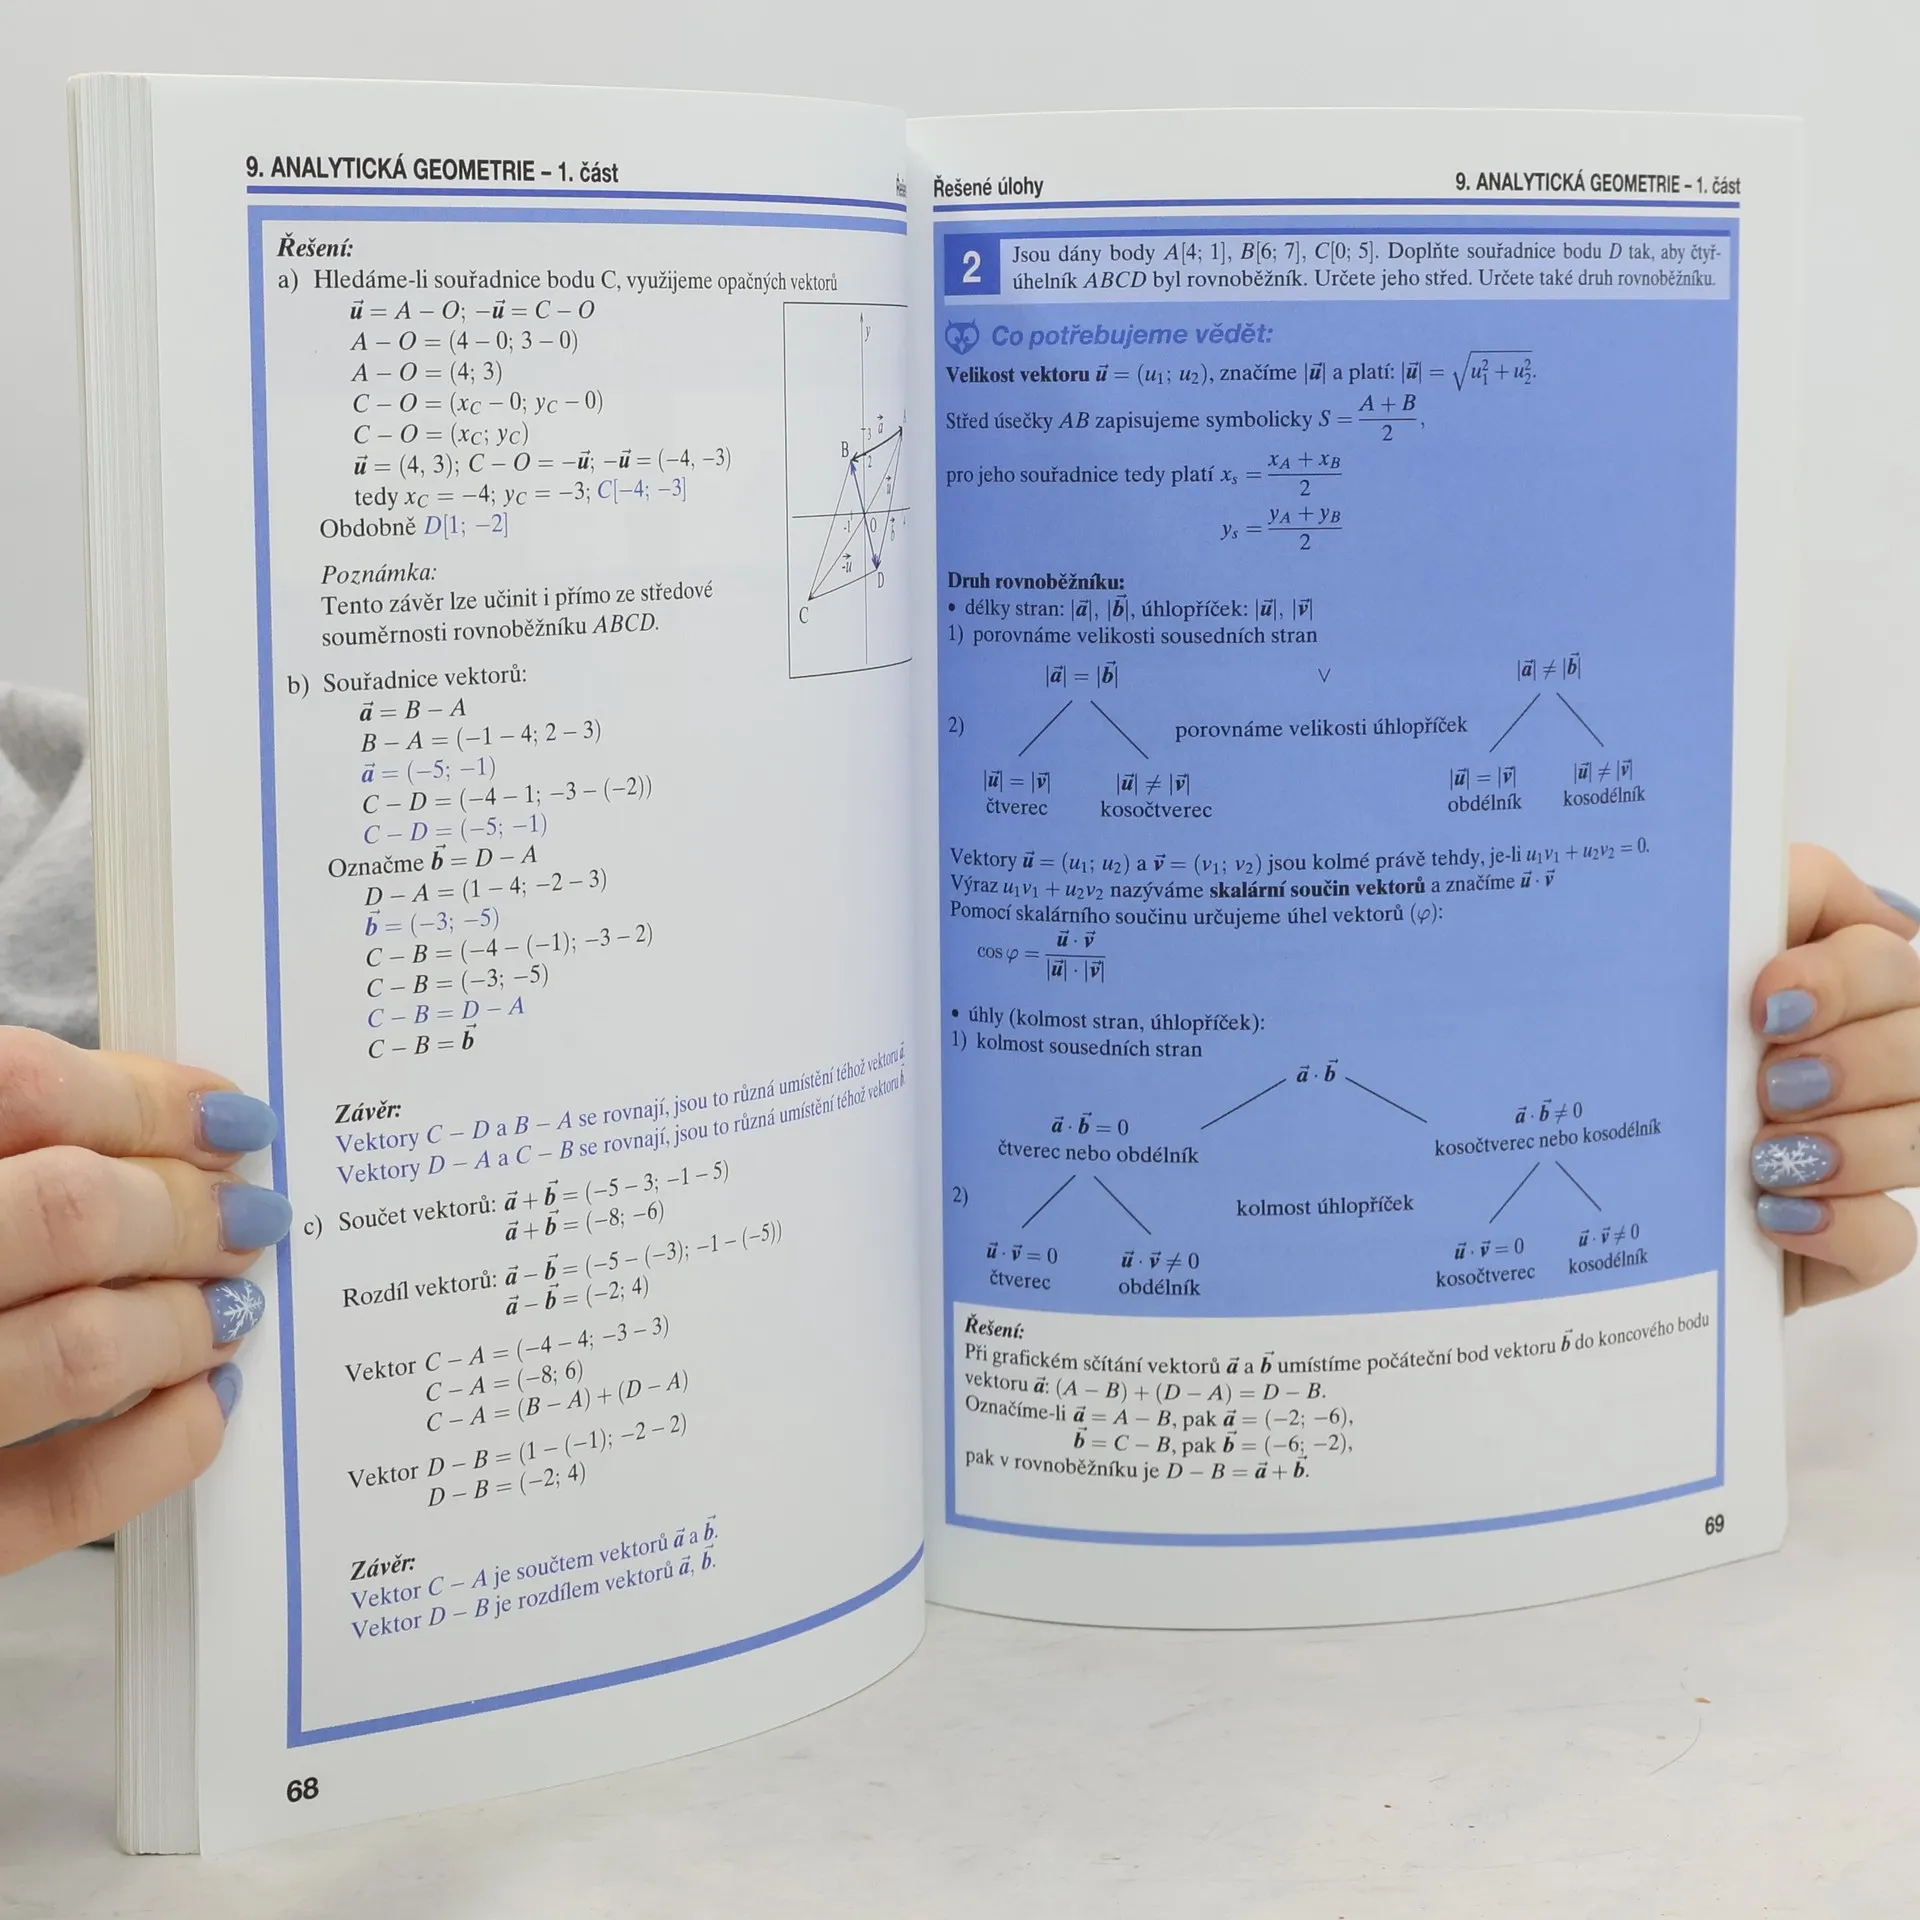 9. ANALYTICKÁ GEOMETRIE – 1. část
Řešení:
a) Hledáme-li souřadnice bodu C, využijeme opačných vektorů
u⃗ = A – O; –u⃗ = C – O
A – O = (4 – 0; 3 – 0)
A – O = (4; 3)
C – O = (x_C – 0; y_C – 0)
C – O = (x_C; y_C)
u⃗ = (4, 3); C – O = –u⃗; –u⃗ = (–4, –3)
tedy x_C = –4; y_C = –3; C[–4; –3]
Obdobně D[1; –2]
y
3 a⃗
B
2
u⃗
-1 0 b⃗
-u⃗
D
C
Poznámka:
Tento závěr lze učinit i přímo ze středové
souměrnosti rovnoběžníku ABCD.
b) Souřadnice vektorů:
a⃗ = B – A
B – A = (–1 – 4; 2 – 3)
a⃗ = (–5; –1)
C – D = (–4 – 1; –3 – (–2))
C – D = (–5; –1)
Označme b⃗ = D – A
D – A = (1 – 4; –2 – 3)
b⃗ = (–3; –5)
C – B = (–4 – (–1); –3 – 2)
C – B = (–3; –5)
C – B = D – A
C – B = b⃗
Závěr:
Vektory C – D a B – A se rovnají, jsou to různá umístění téhož vektoru a⃗.
Vektory D – A a C – B se rovnají, jsou to různá umístění téhož vektoru b⃗.
c) Součet vektorů: a⃗ + b⃗ = (–5 – 3; –1 – 5)
a⃗ + b⃗ = (–8; –6)
Rozdíl vektorů: a⃗ – b⃗ = (–5 – (–3); –1 – (–5))
a⃗ – b⃗ = (–2; 4)
Vektor C – A = (–4 – 4; –3 – 3)
C – A = (–8; 6)
C – A = (B – A) + (D – A)
Vektor D – B = (1 – (–1); –2 – 2)
D – B = (–2; 4)
Závěr:
Vektor C – A je součtem vektorů a⃗ a b⃗.
Vektor D – B je rozdílem vektorů a⃗, b⃗.
68
Řešené úlohy 9. ANALYTICKÁ GEOMETRIE – 1. část
2 Jsou dány body A[4; 1], B[6; 7], C[0; 5]. Doplňte souřadnice bodu D tak, aby čtyř-
úhelník ABCD byl rovnoběžník. Určete jeho střed. Určete také druh rovnoběžníku.
Co potřebujeme vědět:
Velikost vektoru u⃗ = (u₁; u₂), značíme |u⃗| a platí: |u⃗| = √(u₁² + u₂²).
Střed úsečky AB zapisujeme symbolicky S = (A + B)/2,
pro jeho souřadnice tedy platí x_s = (x_A + x_B)/2
y_s = (y_A + y_B)/2
Druh rovnoběžníku:
• délky stran: |a⃗|, |b⃗|, úhlopříček: |u⃗|, |v⃗|
1) porovnáme velikosti sousedních stran
|a⃗| = |b⃗| ∨ |a⃗| ≠ |b⃗|
2) porovnáme velikosti úhlopříček
|u⃗| = |v⃗| |u⃗| ≠ |v⃗| |u⃗| = |v⃗| |u⃗| ≠ |v⃗|
čtverec kosočtverec obdélník kosodélník
Vektory u⃗ = (u₁; u₂) a v⃗ = (v₁; v₂) jsou kolmé právě tehdy, je-li u₁v₁ + u₂v₂ = 0.
Výraz u₁v₁ + u₂v₂ nazýváme skalární součin vektorů a značíme u⃗ · v⃗
Pomocí skalárního součinu určujeme úhel vektorů (φ):
cos φ = (u⃗ · v⃗)/(|u⃗| · |v⃗|)
• úhly (kolmost stran, úhlopříček):
1) kolmost sousedních stran
a⃗ · b⃗
a⃗ · b⃗ = 0 a⃗ · b⃗ ≠ 0
čtverec nebo obdélník kosočtverec nebo kosodélník
2) kolmost úhlopříček
u⃗ · v⃗ = 0 u⃗ · v⃗ ≠ 0 u⃗ · v⃗ = 0 u⃗ · v⃗ ≠ 0
čtverec obdélník kosočtverec kosodélník
Řešení:
Při grafickém sčítání vektorů a⃗ a b⃗ umístíme počáteční bod vektoru b⃗ do koncového bodu
vektoru a⃗: (A – B) + (D – A) = D – B.
Označíme-li a⃗ = A – B, pak a⃗ = (–2; –6),
b⃗ = C – B, pak b⃗ = (–6; –2),
pak v rovnoběžníku je D – B = a⃗ + b⃗.
69